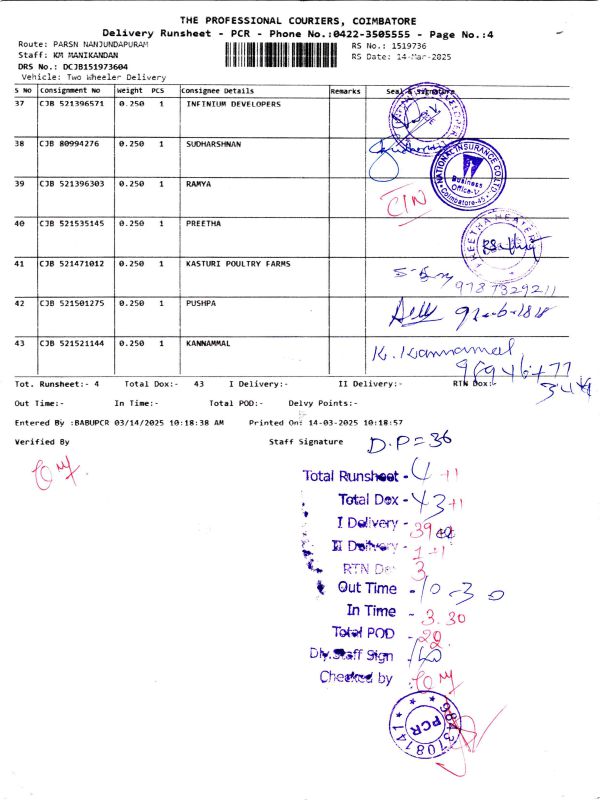 THE PROFESSIONAL COURIERS, COIMBATORE
Delivery Runsheet - PCR - Phone No.:0422-3505555 - Page No.:4
Route: PARSN NANJUNDAPURAM
RS No.: 1519736
Staff: KM MANIKANDAN
RS Date: 14-Mar-2025
DRS No.: DCJB151973604
Vehicle: Two Wheeler Delivery
S No Consignment No Weight PCS Consignee Details Remarks Seal & Signature
37 CJB 521396571 0.250 1 INFINIUM DEVELOPERS
38 CJB 80994276 0.250 1 SUDHARSHNAN
NATIONAL INSURANCE CO LTD
Business
Office-V
Coimbatore-45
39 CJB 521396303 0.250 1 RAMYA
CIN
40 CJB 521535145 0.250 1 PREETHA
41 CJB 521471012 0.250 1 KASTURI POULTRY FARMS
42 CJB 521501275 0.250 1 PUSHPA
43 CJB 521521144 0.250 1 KANNAMMAL
K. Kannammal
Tot. Runsheet:- 4 Total Dox:- 43 I Delivery:- II Delivery:- RTN Dox:-
Out Time:- In Time:- Total POD:- Delvy Points:-
Entered By :BABUPCR 03/14/2025 10:18:38 AM Printed On: 14-03-2025 10:18:57
Verified By Staff Signature D.P=36
Total Runsheet - 4 +1
Total Dox - 43 +1
I Delivery - 39
II Delivery - 1+1
RTN Dox 3
Out Time - 10-30
In Time - 3.30
Total POD - 29
Dly.Staff Sign
Checked by
PCR
9843708141